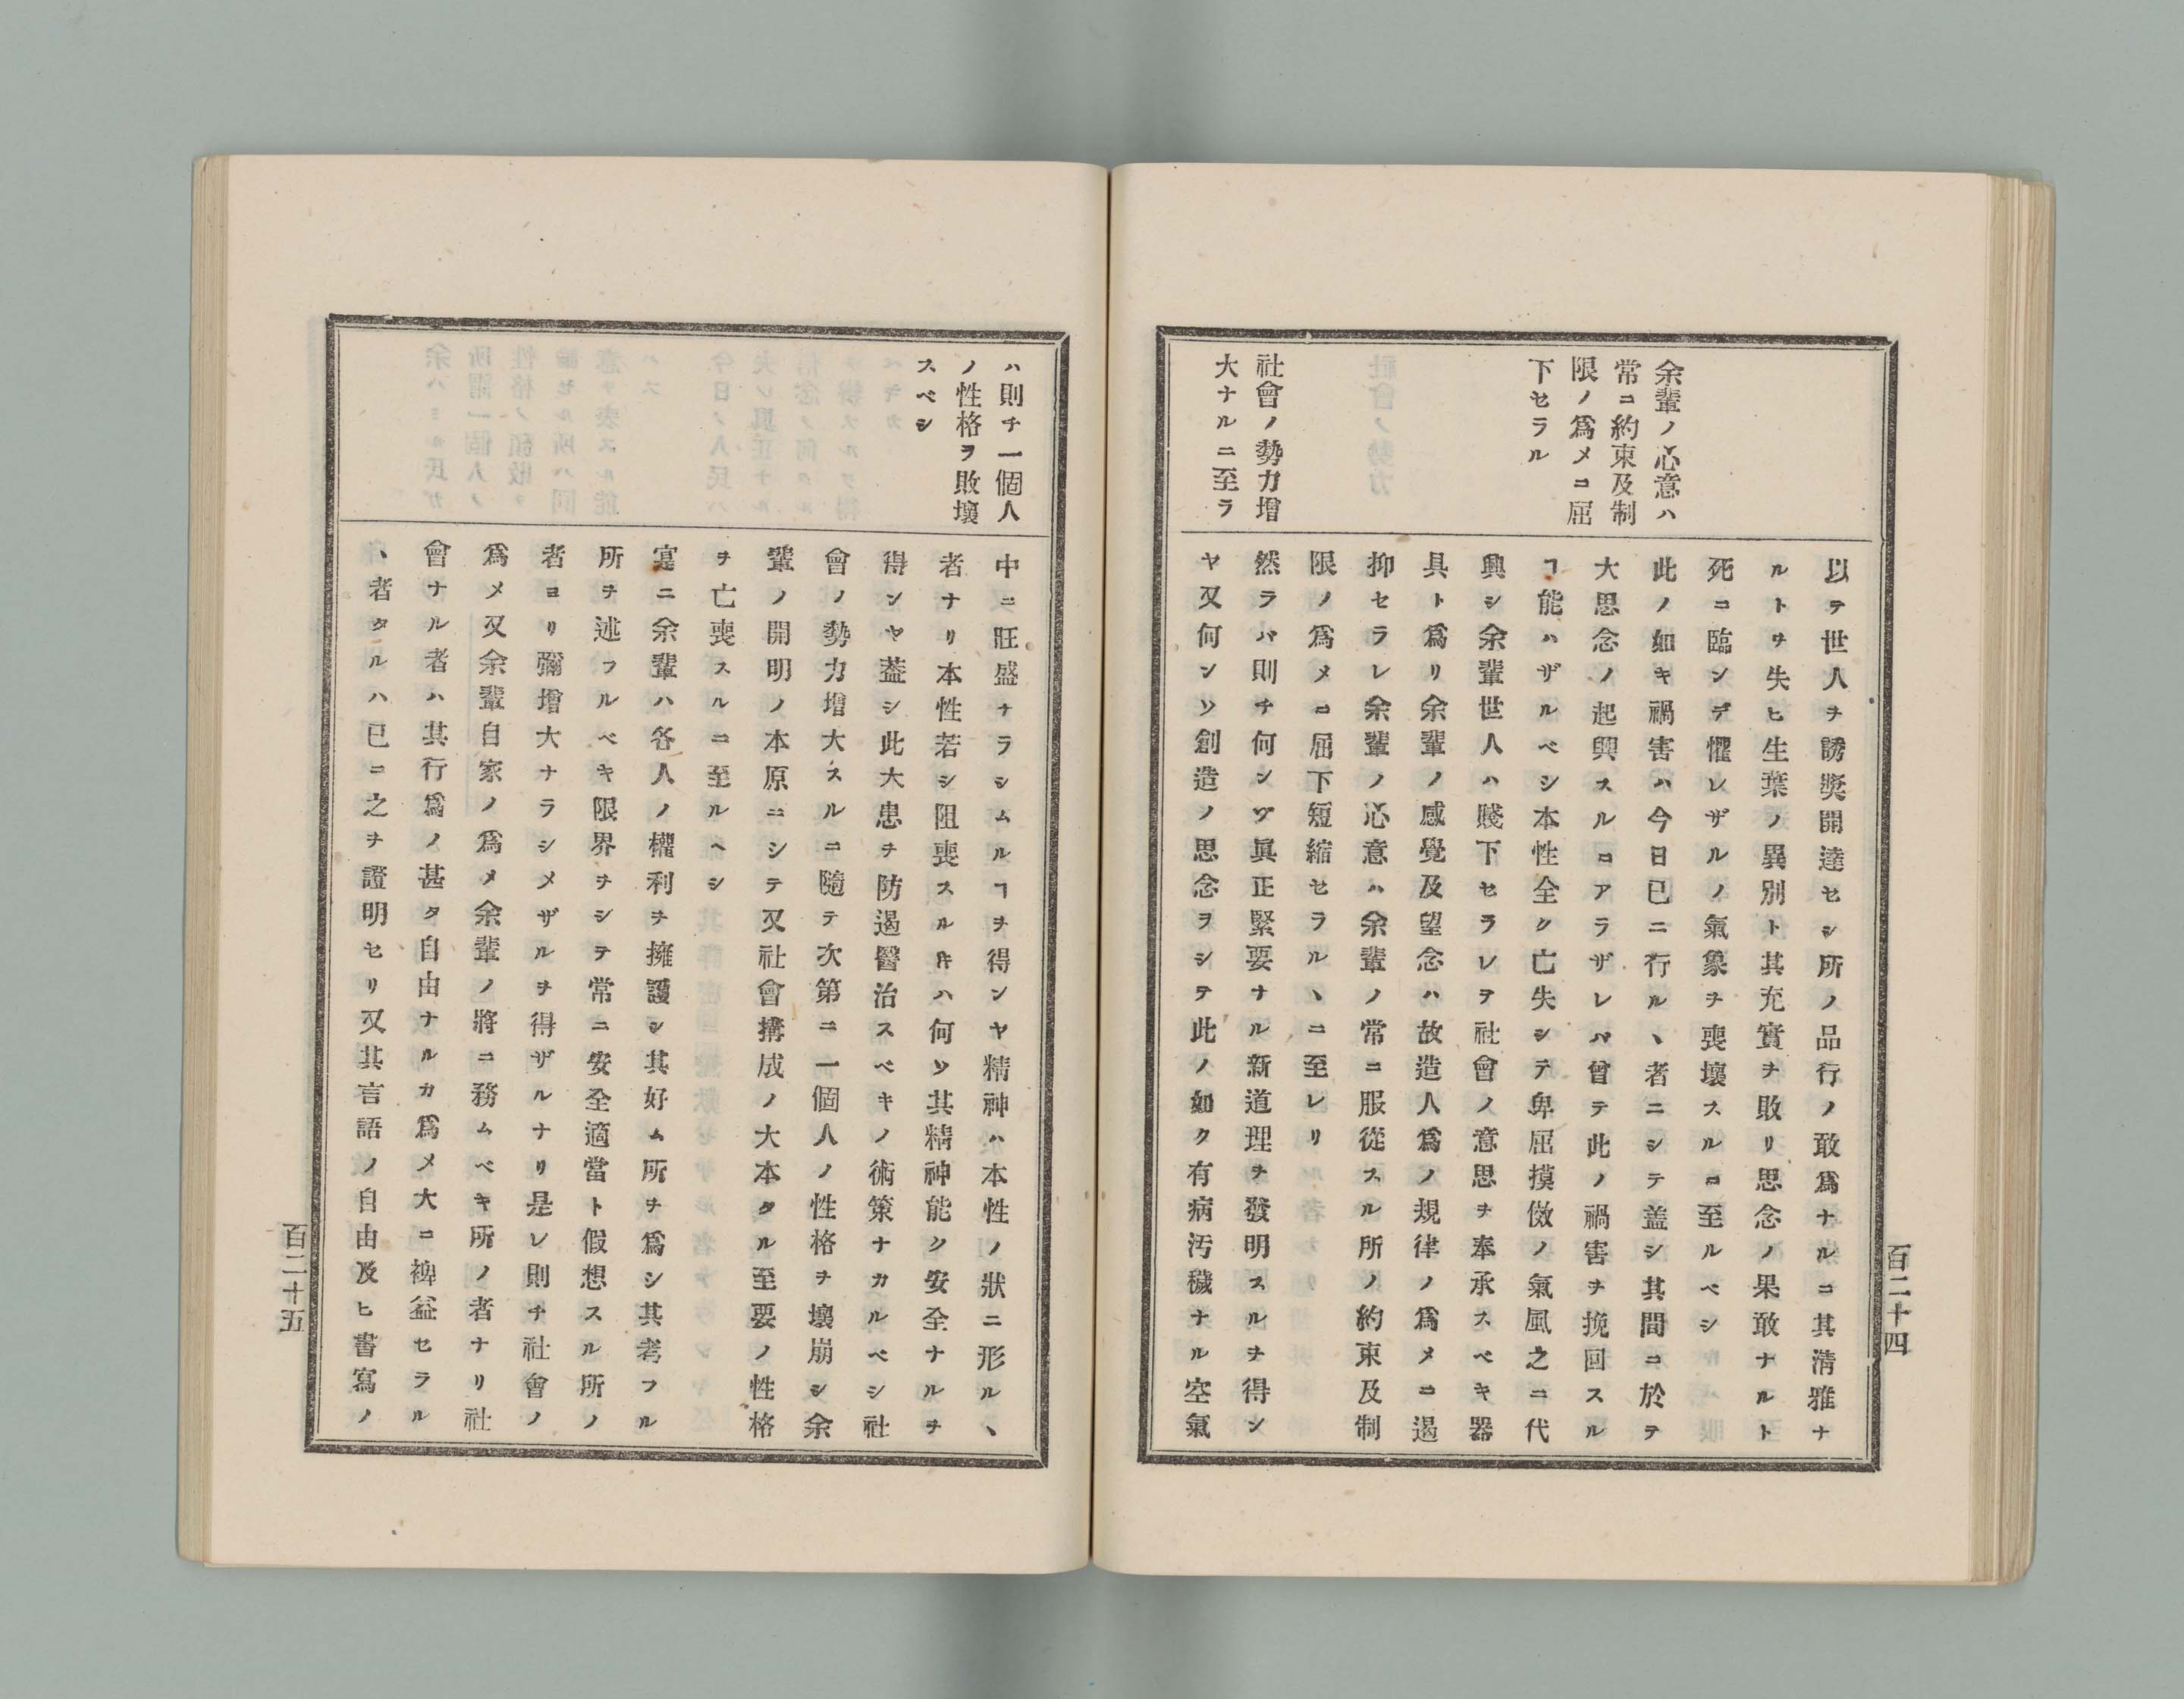 余輩ノ心意ハ
常ニ約束及制
限ノ爲メニ屈
下セラル
社會ノ勢力增
大ナルニ至ラ
以テ世人ヲ誘奬開達セシ所ノ品行ノ敢爲ナルニ其淸雅ナ
ルトヲ失ヒ生葉ノ異別ト其充實ヲ敗リ思念ノ果敢ナルト
死ニ臨ンデ懼レザルノ氣象ヲ喪壞スルニ至ルベシ
此ノ如キ禍害ハ今日已ニ行ルヽ者ニシテ盖シ其間ニ於テ
大思念ノ起興スルコアラザレバ曾テ此ノ禍害ヲ挽回スル
ヿ能ハザルベシ本性全ク亡失シテ卑屈摸倣ノ氣風之ニ代
興シ余輩世人ハ賤下セラレテ社會ノ意思ヲ奉承スベキ器
具ト爲リ余輩ノ感覺及望念ハ故造人爲ノ規律ノ爲メニ遏
抑セラレ余輩ノ心意ハ余輩ノ常ニ服從スル所ノ約束及制
限ノ爲メニ屈下短縮セラルヽニ至レリ
然ラバ則チ何ンゾ眞正緊要ナル新道理ヲ發明スルヲ得ン
ヤ又何ンソ創造ノ思念ヲシテ此ノ如ク有病汚穢ナル空氣
百二十四
ハ則チ一個人
ノ性格ヲ敗壞
スベシ
中ニ旺盛ナラシムルヿヲ得ンヤ精神ハ本性ノ狀ニ形ルヽ
者ナリ本性若シ阻喪スル𪜈ハ何ソ其精神能ク安全ナルヲ
得ンヤ葢シ此大患ヲ防遏醫治スベキノ術策ナカルベシ社
會ノ勢力增大スルニ隨テ次第ニ一個人ノ性格ヲ壞崩シ余
輩ノ開明ノ本原ニシテ又社會搆成ノ大本タル至要ノ性格
ヲ亡喪スルニ至ルヘシ
寔ニ余輩ハ各人ノ權利ヲ擁護シ其好ム所ヲ爲シ其考フル
所ヲ述フルベキ限界ヲシテ常ニ安全適當ト假想スル所ノ
者ヨリ彌增大ナラシメザルヲ得ザルナリ是レ則チ社會ノ
爲メ又余輩自家ノ爲メ余輩ノ將ニ務ムベキ所ノ者ナリ社
會ナル者ハ其行爲ノ甚タ自由ナルカ爲メ大ニ裨益セラル
ヽ者タルハ已ニ之ヲ證明セリ又其言語ノ自由及ヒ書寫ノ
百二十五